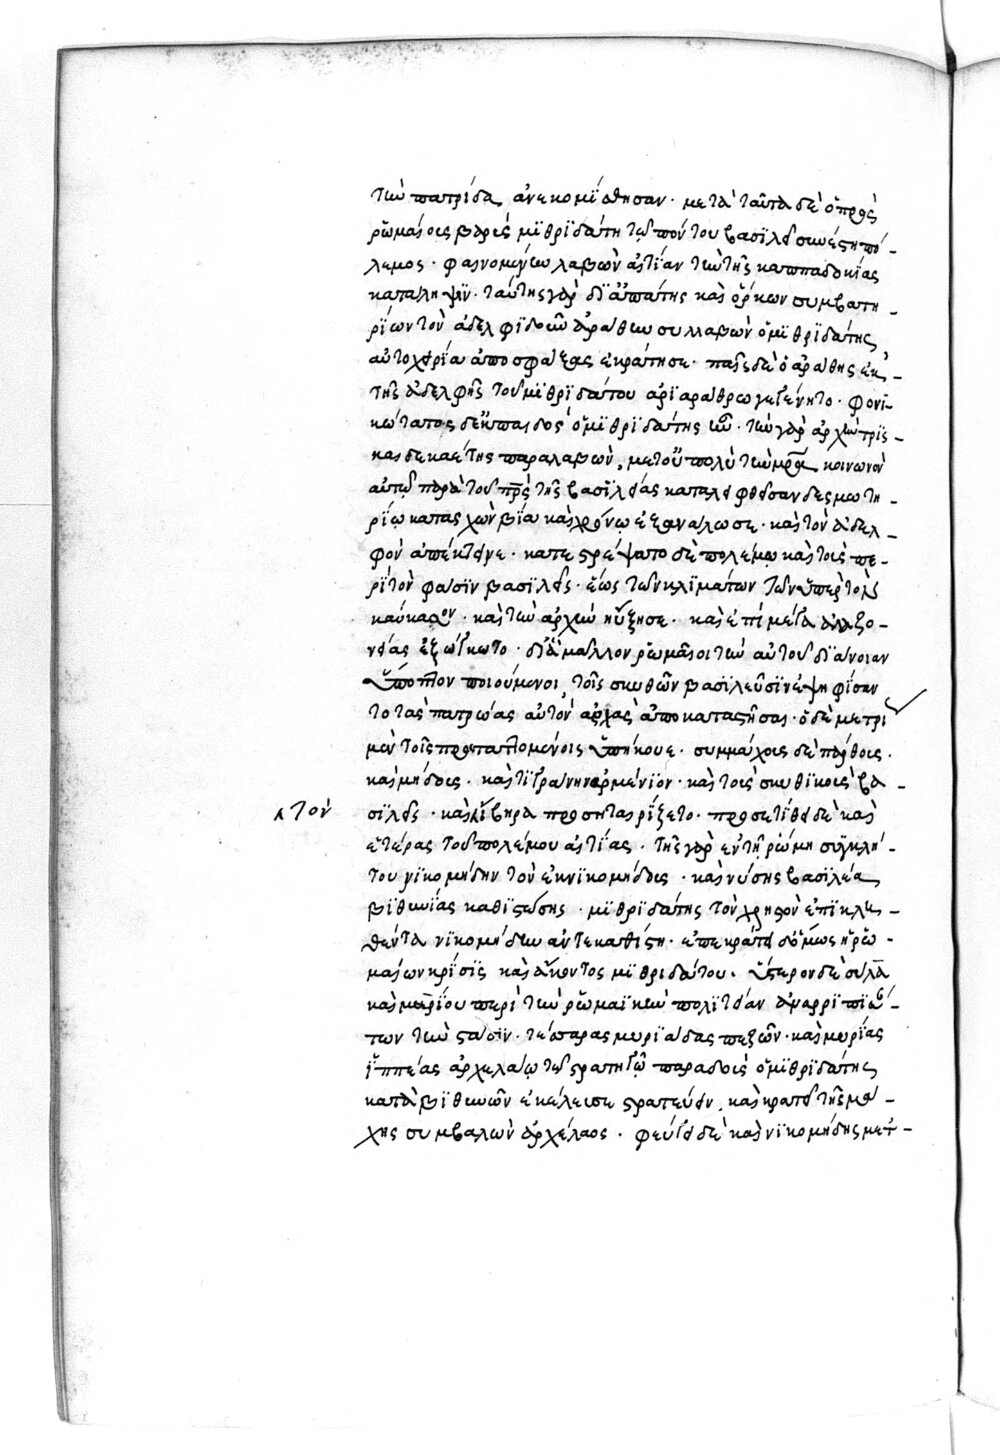 τὴν πατρίδα ἀνεκομίσθησαν· μετὰ ταῦτα δὲ ὁ πρὸς
ῥωμαίοις βαρὺς μϊθριδάτη τῶ πόντου βασιλεῖ συνέστη πό-
λεμος· φαινομένην λαβὼν αἰτίαν τὴν τῆς καππαδοκίας
κατάληψϊν· ταύτης γὰρ δι' ἀπάτης καὶ ὅρκων συμβατη-
ρίων τὸν ἀδελφϊδοῦν ἀράθην συλλαβὼν ὁ μϊθρϊδάτης
αὐτοχειρία ἀποσφάξας ἐκράτησε· παῖς δὲ ὁ ἀράθης ἐκ
τῆς ἀδελφῆς τοῦ μϊθρϊδάτου ἀρϊαράθρω γεγένητο· φονϊ-
κώτατος δ' ἐκ παιδὸς ὁ μϊθρϊδάτης ἦν· τὴν γὰρ ἀρχὴν τρϊς-
καιδεκαέτης παραλαβὼν, μετ' οὐ πολὺ τὴν μητέρα κοινωνὸν
αὐτῶ παρὰ τοῦ πατρὸς τῆς βασϊλείας καταλειφθεῖσαν δεσμωτη-
ρίω κατασχὼν βία καὶ χρόνω ἐξανάλωσε· καὶ τὸν ἀδελ-
φὸν ἀπέκτεινε· κατεστρέψατο δὲ πολέμω καὶ τοὺς πε-
ρὶ τὸν φάσϊν βασϊλεῖς· ἕως τῶν κλϊμάτων τῶν ὑπὲρ τὸν
καύκασον· καὶ τὴν ἀρχὴν ηὔξησε· καὶ ἐπὶ μέγα ἀλαζο-
νείας ἐξώγκωτο· δϊὰ μᾶλλον ῥωμαῖοι τὴν αὐτοῦ δϊάνοιαν
ὕποπτον ποιούμενοι, τοῖς σκυθῶν βασιλεῦσϊν ἐψηφίσαν
το τὰς πατρώας αὐτὸν ἀρχὰς ἀποκαταστῆσαι· ὁ δὲ μετρί
μὲν τοῖς προσταττομένοις ὑπήκουε· συμμάχους δὲ πάρθους·
καὶ μήδους· καὶ τϊγράνην ἀρμένιον· καὶ τοὺς σκυθϊκοὺς βα-
σϊλεῖς· καὶ ἴβηρα προσηταιρίζετο· προσετίθει δὲ καὶ
⁁ τὸν
ἑτέρας τοῦ πολέμου αἰτίας· τῆς γὰρ ἐν τῆ ῥώμη συγκλή-
του νϊκομήδην τὸν ἐκ νϊκομήδους· καὶ νύσης βασϊλέα
βϊθυνίας καθϊστώσης· μϊθρϊδάτης τὸν χρηστὸν ἐπϊκλη-
θέντα νϊκομήδει ἀντεκαθίστη· ἐπεκράτει δ' ὅμως ἡ ῥω-
μαίων κρίσϊς καὶ ἄκοντος μϊθριδάτου· ὕστερον δὲ σύλλα
καὶ μαρίου περὶ τὴν ῥωμαϊκὴν πολϊτείαν ἀναρριπϊζόν-
των τὴν στάσϊν· τέσσαρας μυρϊάδας πεζῶν· καὶ μυρίας
ἱππέας ἀρχελάω τῶ στρατηγῶ παραδοὺς ὁ μϊθρϊδάτης
κατὰ βϊθυνῶν ἐκέλευσε στρατεύειν· καὶ κρατεῖ τῆς μά-
χης συμβαλὼν ἀρχέλαος· φεύγει δὲ καὶ νϊκομήδης μετ-